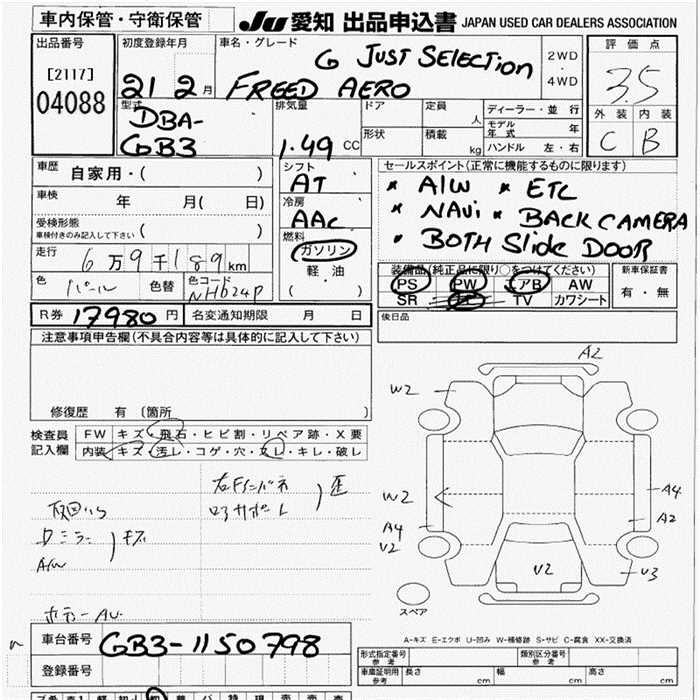 車内保管・守衛保管
JU 愛知 出品申込書 JAPAN USED CAR DEALERS ASSOCIATION
出品番号
[2117]
04088
初度登録年月
21 2 月
車名・グレード
G JUST SELECTION
FREED AERO
2WD
・
4WD
評価点
3.5
外装 内装
C B
型式
DBA-
GB3
排気量
1.49 CC
ドア
定員
人
形状
積載
kg
ディーラー・並行
モデル年式 年
ハンドル 左・右
車歴
自家用・( )
車検 年 月( 日)
受検形態
車検付きのみ記入して下さい ( )
走行 6万9千189km
色 パール 色替 色コード NH624P
シフト
AT
冷房
AAC
燃料
ガソリン
軽油
( ・ )
セールスポイント(正常に機能するものに限ります)
* A/W * ETC
* NAVi * BACK CAMERA
• BOTH Slide DOOR
装備品(純正品に限り○をつけてください)
PS PW エアB AW
SR TV カワシート
新車保証書
有・無
R券 17980 円 名変通知期限 月 日
後日品
注意事項申告欄(不具合内容等は具体的に記入して下さい)
修復歴 有 (箇所 )
検査員
記入欄
FW キズ・飛石・ヒビ割・リペア跡・X要
内装 キズ・汚レ・コゲ・穴・スレ・キレ・破レ
右Fインパネ
ロアサポート
歪
Dミラー
キズ
A/W
A2
W2
W2
A4
V2
A4
A2
V2
V3
スペア
A-キズ E-エクボ U-凹み W-補修跡 S-サビ C-腐食 XX-交換済
車台番号 GB3-1150798
登録番号
形式指定番号
参考
類別区分番号
参考
車庫証明用
参考
長さ cm 幅 cm 高さ cm